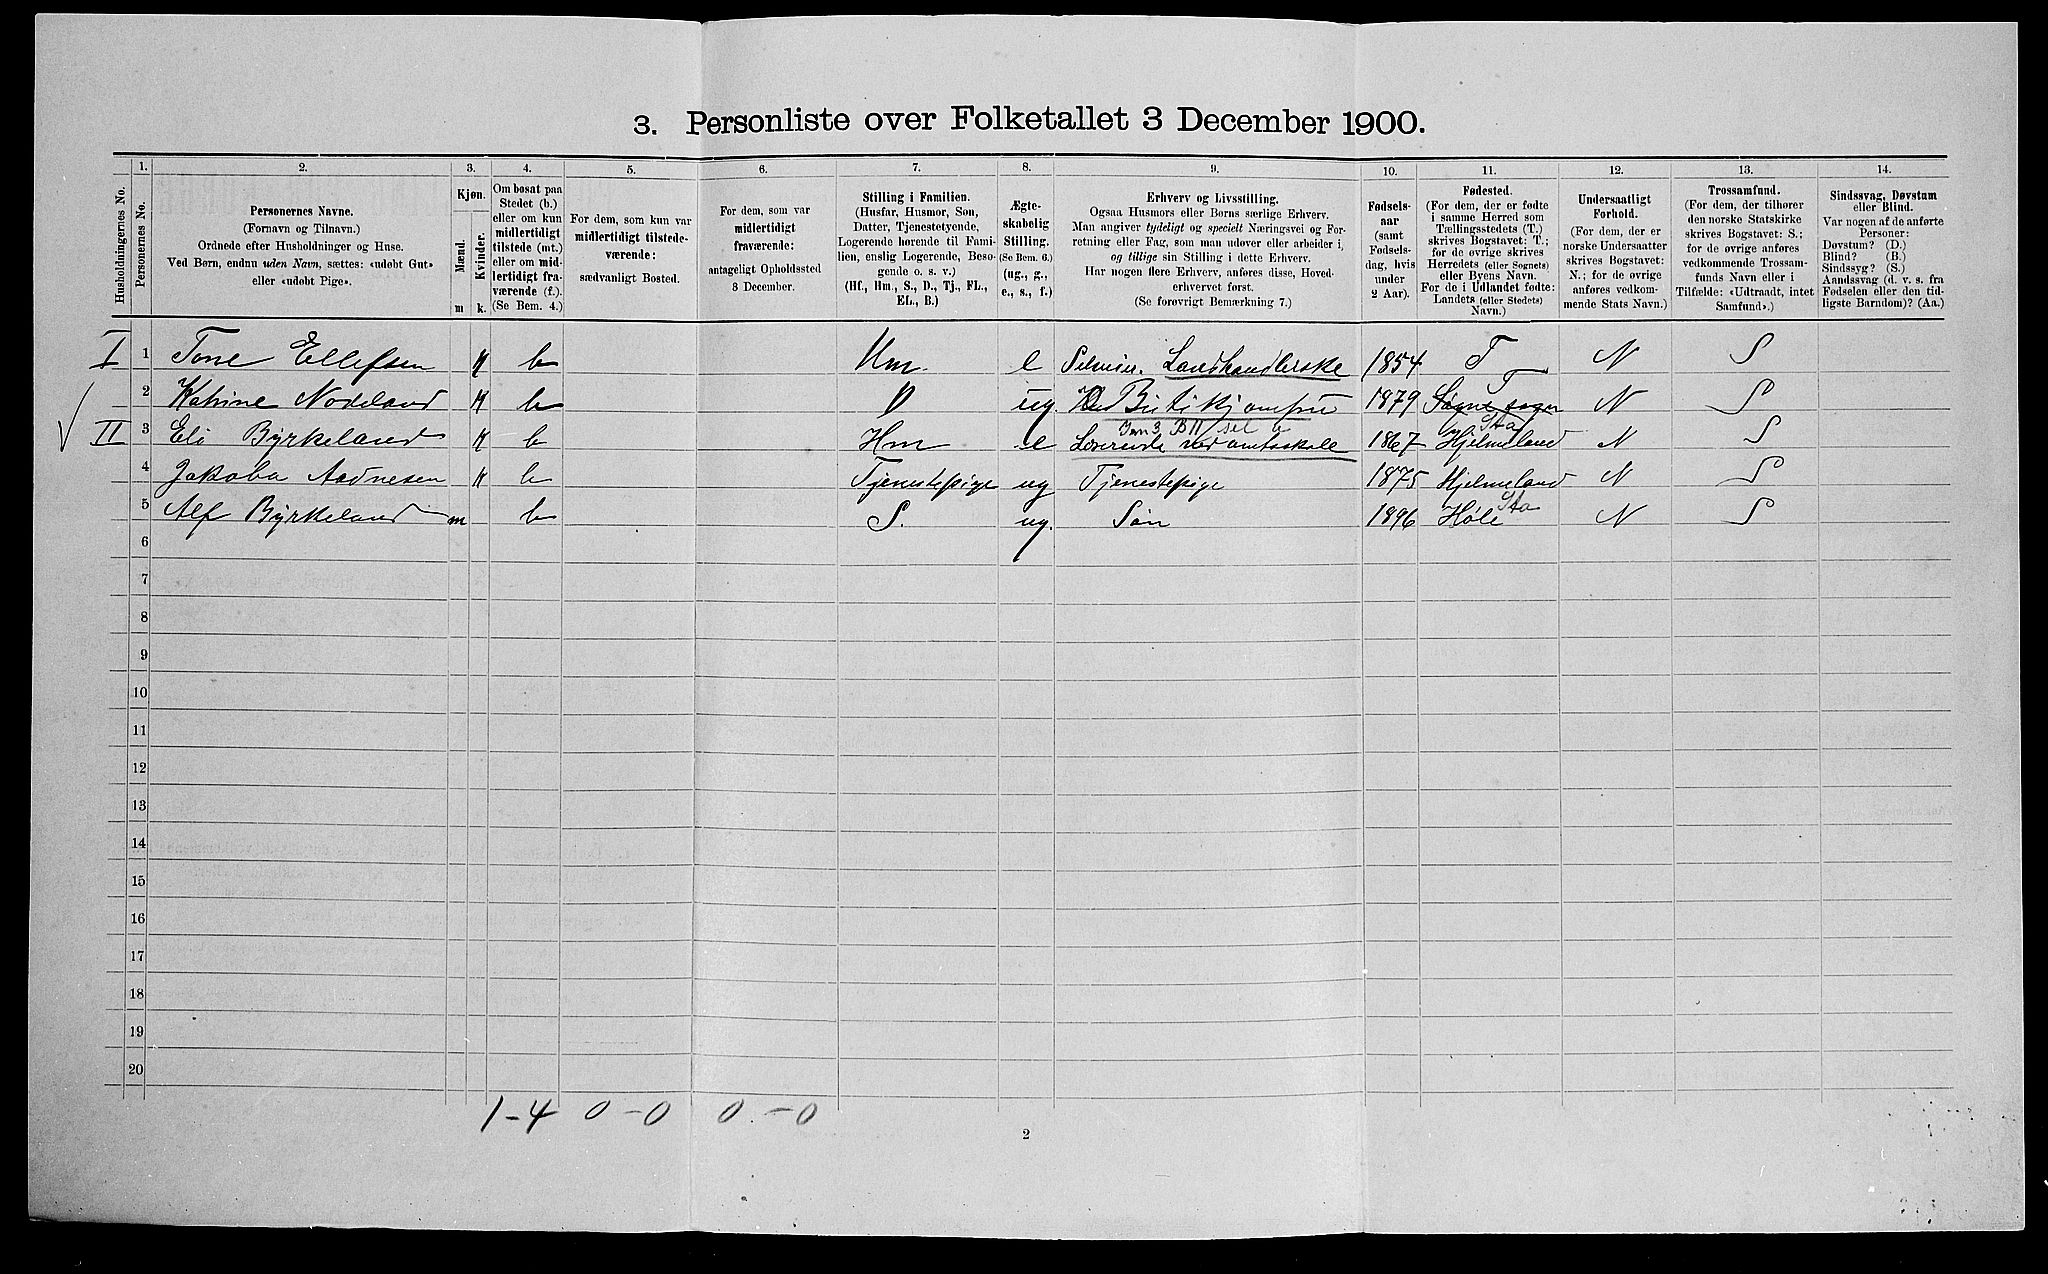 3. Personliste over Folketallet 3 December 1900.
1. 2. 3. 4. 5. 6. 7. 8. 9. 10. 11. 12. 13. 14.
Husholdningernes No.
Personernes No.
Personernes Navne.
(Fornavn og Tilnavn.)
Ordnede efter Husholdninger og Huse.
Ved Børn, endnu uden Navn, sættes: «udøbt Gut»
eller «udøbt Pige».
Kjøn.
Mænd.
Kvinder.
m k.
Om bosat paa
Stedet (b.)
eller om kun
midlertidigt
tilstede (mt.)
eller om mid-
lertidigt fra-
værende (f.)
(Se Bem. 4.)
For dem, som kun var
midlertidigt tilstede-
værende:
sædvanligt Bosted.
For dem, som var
midlertidigt
fraværende:
antageligt Opholdssted
3 December.
Stilling i Familien.
(Husfar, Husmor, Søn,
Datter, Tjenestetyende,
Logerende hørende til Fami-
lien, enslig Logerende, Besø-
gende o. s. v.)
(Hf., Hm., S., D., Tj., FL.,
EL., B.)
Ægte-
skabelig
Stilling.
(Se Bem. 6.)
(ug., g.,
e., s., f.)
Erhverv og Livsstilling.
Ogsaa Husmors eller Børns særlige Erhverv.
Man angiver tydeligt og specielt Næringsvei og For-
retning eller Fag, som man udøver eller arbeider i,
og tillige sin Stilling i dette Erhverv.
Har nogen flere Erhverv, anføres disse, Hoved-
erhvervet først.
(Se forøvrigt Bemærkning 7.)
Fødsels-
aar
(samt
Fødsels-
dag, hvis
under
2 Aar).
Fødested.
(For dem, der er fødte
i samme Herred som
Tællingsstedets (T.)
skrives Bogstavet: T.;
for de øvrige skrives
Herredets (eller Sognets)
eller Byens Navn.
For de i Udlandet fødte:
Landets (eller Stedets)
Navn.)
Undersaatligt
Forhold.
(For dem, der er
norske Undersaatter
skrives Bogstavet:
N.; for de øvrige
anføres vedkom-
mende Stats Navn.)
Trossamfund.
(For dem, der tilhører
den norske Statskirke
skrives Bogstavet: S.;
for de øvrige anføres
vedkommende Trossam-
funds Navn eller i
Tilfælde: «Udtraadt, intet
Samfund».)
Sindssvag, Døvstum
eller Blind.
Var nogen af de anførte
Personer:
Døvstum? (D.)
Blind? (B.)
Sindssyg? (S.)
Aandssvag (d. v. s. fra
Fødselen eller den tid-
ligste Barndom)? (Aa.)
I 1 Tone Ellefsen K b Hm. e Landhandlerske 1854 T N S
2 Katrine Nodeland K b D ug. Butikjomfru 1879 Søgne sogn T N S
II 3 Eli Byrkeland K b Hm e Lærerinde ved amtsskole 1867 Hjelmeland Sta N S
4 Jakoba Aadnesen K b Tjenestepige ug Tjenestepige 1875 Hjelmeland N S
5 Alf Byrkeland m b S. ug. Søn 1896 Høle Sta N S
6
7
8
9
10
11
12
13
14
15
16
17
18
19
20
1-4 0-0 0.-0
2